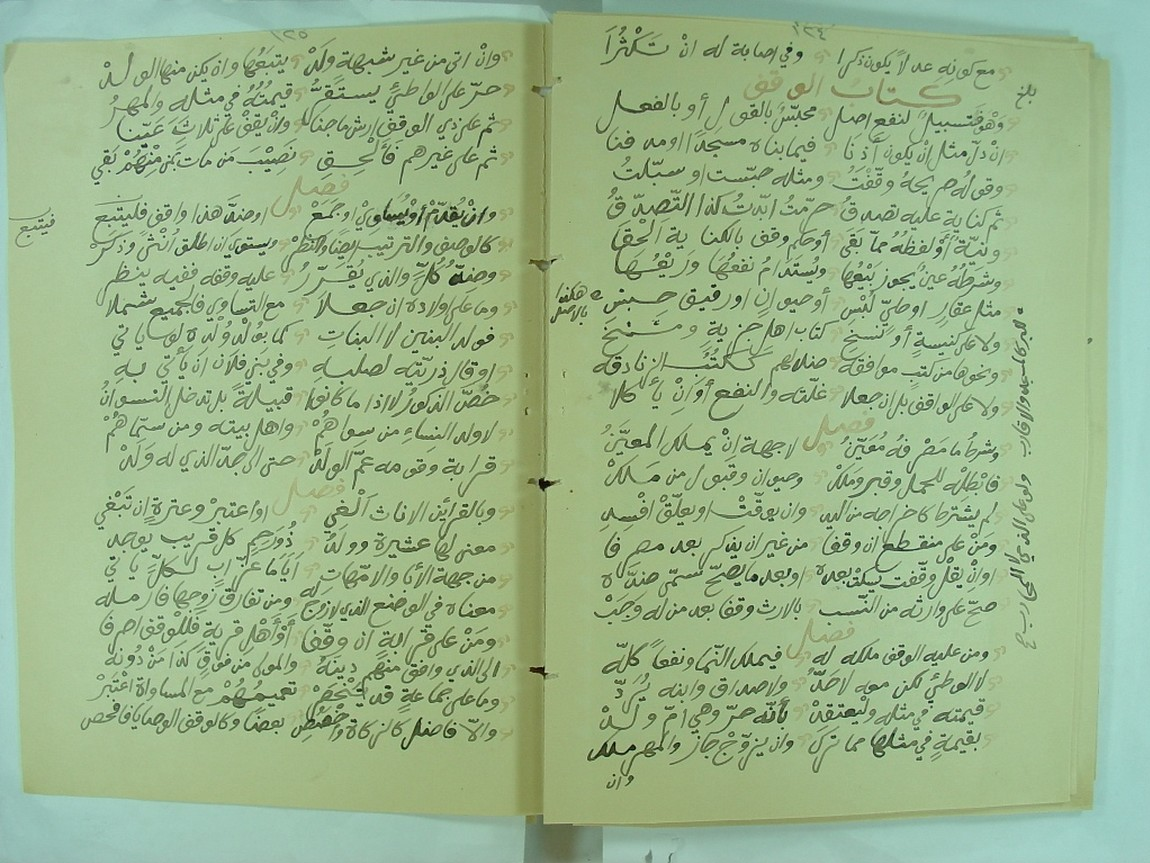 ١٢٤
مع كونه عدلا يكون ذكرا وفي اصابة له ان تكثرا
كتاب الوقف
وهو فتسبيل لنفع اصل محبس بالقول أو بالفعل
ان دل مثل ان يكون أذنا فيما بناه مسجدا او مدفنا
وقوله صريحه وقفت ومثله حبست او سبلت
ثم كناية عليه تصدق حرمت ابدت كذا التصدق
ونية أو لفظه مما بقى أو حكم وقف بالكناية الحقا
وشرطه عين يجوز بيعها ويستدام نفعها وريعها
مثل عقار او حلي لبس أو حيوان او رقيق حبس
ولا على كنيسة أو نسخ كتاب اهل جزية
ونحوها من كتب موافقه ضلالهم ككتب الزنادقه
ولا على الواقف بل ان جعلا غلته والنفع أو ان يأكلا
فصل
وشرط ما مصرفه معين لا جهة ان يملك المعين
فابطله للحمل وقبر وملك وحيوان وقبول من ملك
لم يشترط كاخراجه من اليد وان يوقت او يعلق افسد
ومن على منقطع ان وقفا من غير ان يذكر بعد مصرفا
او ان يقل وقفت يسكت بعده او بعد ما يصح سمى ضده
صح على وارثه من النسب بالارث وقفا بعد من له وجب
فصل
ومن عليه الوقف ملكه له فيملك النما ونفعا كله
لا الوطئ لكن معه لا حد ولا صداق وابنه يرد
قيمته في مثله وليعتقد بأنه حر وهي ام ولد
بقيمة في مثلها مما ترك وان يزوج جاز والمهر ملك
وان
بلغ
هكذا بالاصل
١٢٥
وان اتى من غير شبهة ولد يتبعها وان يكن منها الولد
حر على الواطئ يستقر قيمته في مثله والمهر
ثم على ذي الوقف ارش ما جنا وان يقف على ثلاث عينا
ثم على غيرهم فألحق نصيب من مات بمن منهم بقي
فصل
وان يقدم أو يساوي او جمع او ضد هذا واقف فليتبع
كالوصف والترتيب ايضا والنظر ويستوي ان اطلق انثى وذكر
وضده كل والذي يقرر عليه وقفه ففيه ينظر
وما على اولاده ان جعلا مع التساوي فالجميع شملا
فولد البنين لا البنات كما بقوله ولده لو ياتي
او قال ذريته لصلبه وفي بني فلان ان يأتي به
خص الذكور لا اذا ما كانوا قبيلة بل تدخل النسوان
لا ولد النساء من سواهم واهل بيته ومن سماهم
قرابة وقومه عم الولد حتى الى جد الذي له ولد
فصل
وبالقرائن الاناث ألغي او اعتبر وعترة ان تبغي
معنى لها عشيرة وولد ذو رحم كل قريب يوجد
من جهة الأبا والامهات أياما عزاب لكل ياتي
معناه في الوضع الذي لا زوج له ومن تفارق زوجها فارمله
ومن على قرابة ان وقفا أو أهل قرية فللوقف اصرفا
الى الذي وافق منهم دينه والمولى من فوق كذا من دونه
وما على جماعة قد ينحصر تعميمهم مع المساواة اعتبر
والا فاضل كالزكاة واخصص بعضا وكالوقف الوصايا فافحص
فيتبع